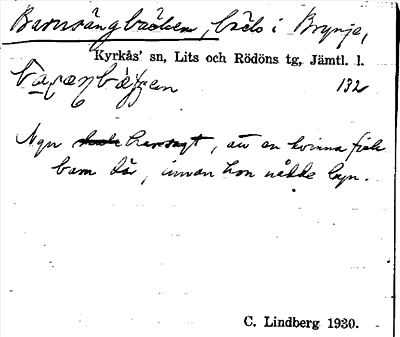 Barnsängbäcken, bäck i Brynje,
Kyrkås' sn, Lits och Rödöns tg, Jämtl. l.
132
Ngn har sagt, att en kvinna fick
barn där, innan hon nådde byn.
C. Lindberg 1930.